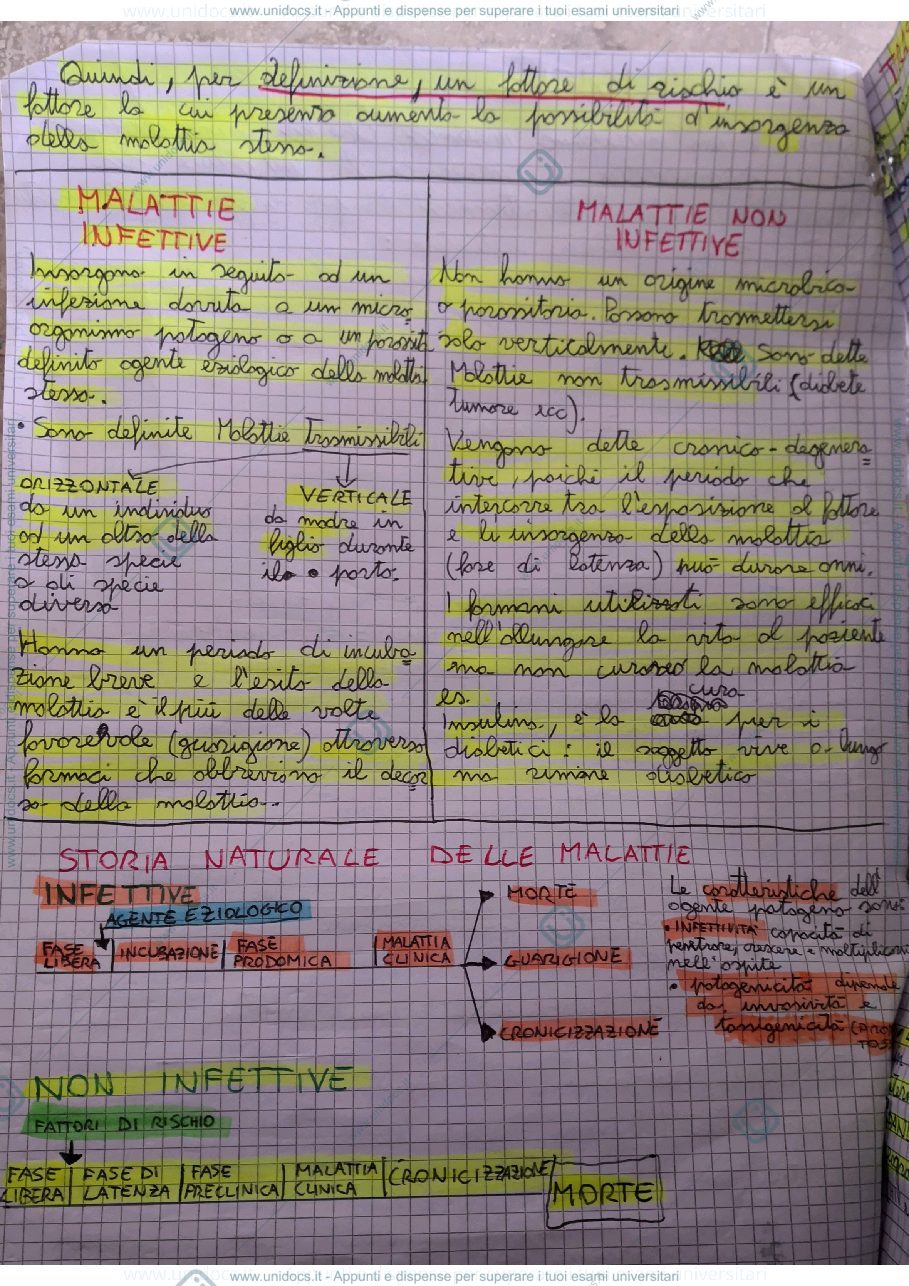 www.unidocs.it - Appunti e dispense per superare i tuoi esami universitari
Quindi, per definizione, un fattore di rischio è un
fattore la cui presenza aumenta la possibilità d'insorgenza
della malattia stessa.
MALATTIE
INFETTIVE
Insorgono in seguito ad un
infezione dovuta a un micro
organismo patogeno o a un parassit
definito agente eziologico della malatti
stessa.
• Sono definite Malattie Trasmissibili
ORIZZONTALE
da un individuo
ad un altro della
stessa specie
o di specie
diversa
VERTICALE
da madre in
figlio durante
il parto.
Hanno un periodo di incuba
zione breve e l'esito della
malattia è il più delle volte
favorevole (guarigione) attraverso
farmaci che abbreviano il decor
so della malattia.
MALATTIE NON
INFETTIVE
Non hanno un origine microbica
o parassitaria. Possono trasmettersi
solo verticalmente. Sono dette
Malattie non trasmissibili (diabete
tumore ecc).
Vengono dette cronico-degenera
tive, poiché il periodo che
intercorre tra l'esposizione al fattore
e li insorgenza della malattia
(fase di latenza) può durare anni.
I farmani utilizzati sono efficaci
nell'allungare la vita al paziente
ma non curano la malattia
es. cura
Insulina, è la per i
diabetici: il soggetto vive a lungo
ma rimane diabetico
STORIA NATURALE DELLE MALATTIE
INFETTIVE
AGENTE EZIOLOGICO
FASE LIBERA | INCUBAZIONE | FASE PRODOMICA | MALATTIA CLINICA
MORTE
GUARIGIONE
CRONICIZZAZIONE
Le caratteristiche dell'
agente patogeno sono:
• INFETTIVITÀ capacità di
penetrare, crescere e moltiplicarsi
nell'ospite
• patogenicità dipende
da invasività e
tossigenicità
NON INFETTIVE
FATTORI DI RISCHIO
FASE LIBERA | FASE DI LATENZA | FASE PRECLINICA | MALATTIA CLINICA | CRONICIZZAZIONE
MORTE
www.unidocs.it - Appunti e dispense per superare i tuoi esami universitari